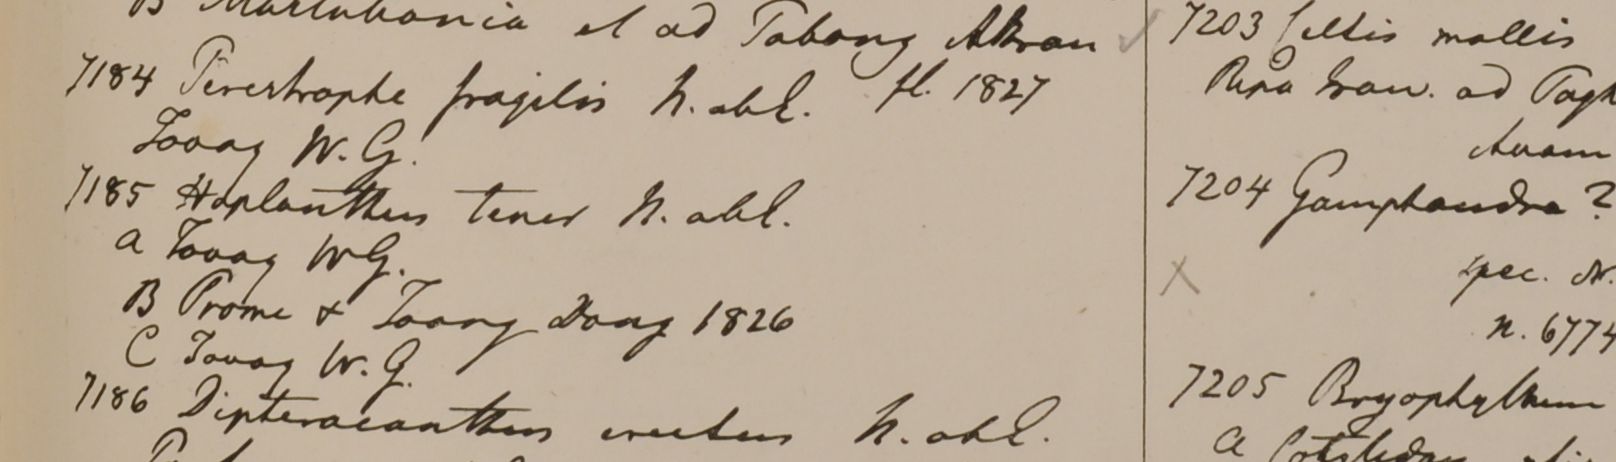 B Martabania et ad Tabong Akran
7184 Perestrophe fragilis N. ab E. fl. 1827
Tovag W. G.
7185 Haplanthus tener N. ab E.
a Tovag W G.
B Prome & Toong Doong 1826
C Tovag W. G.
7186 Dipteracanthus erectus N. ab E.
7203 Celtis mollis
Ripa Iraw. ad
7204 Gomphandra ?
spec. N.
n. 6774
7205 Bryophyllum
a Cotyledon